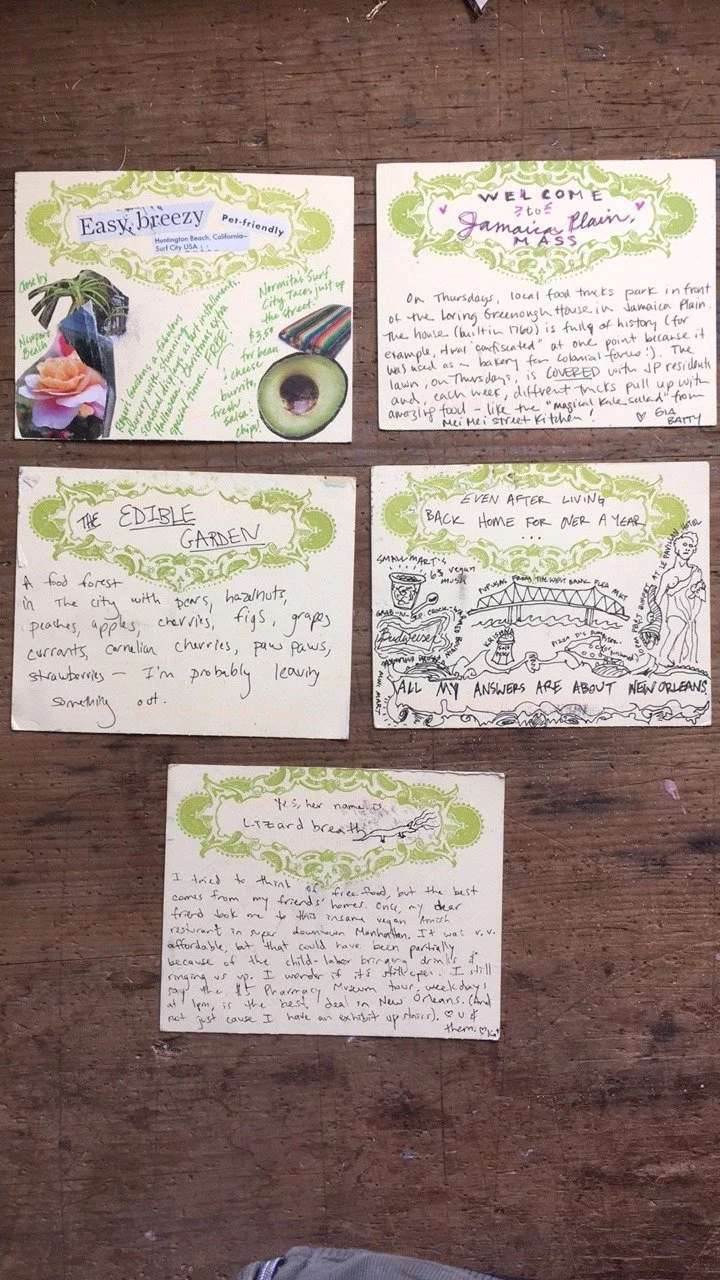 Easy, breezy
Pet-friendly
Huntington Beach, California
Surf City USA
Close by
Newport
Beach
Roger's Gardens a fabulous
nursery with stunning
seasonal displays + art installments.
Halloween + Christmas extra
special times! FREE
Normita's Surf
City Tacos just up
the street!
$3.50
for bean
+ cheese
burrito
fresh
salsa +
chips!
WELCOME
to
Jamaica Plain,
MASS
On Thursdays, local food trucks park in front
of the Loring Greenough House in Jamaica Plain.
The house (built in 1760) is full of history (for
example, it was "confiscated" at one point because it
was used as a bakery for colonial forces!). The
lawn, on Thursdays, is COVERED with JP residents
and, each week, different trucks pull up with
amazing food - like the "magical kale salad" from
Mei Mei Street Kitchen!
♡ GIA
BATTY
THE EDIBLE
GARDEN
A food forest
in the city with pears, hazelnuts,
peaches, apples, cherries, figs, grapes
currants, cornelian cherries, paw paws,
strawberries — I'm probably leaving
something out.
EVEN AFTER LIVING
BACK HOME FOR OVER A YEAR
...
SMALL MART'S
6$ vegan
PUPUSAS FROM THE WEST BANK FLEA MKT
Budweiser
AT LE PAVILLON HOTEL
MINI MART
ALL MY ANSWERS ARE ABOUT NEW ORLEANS
Yes, her name is
Lizard breath
I tried to think of free food, but the best
comes from my friends' homes. Once, my dear
friend took me to this insane vegan Amish
resturant in super downtown Manhattan. It was v.v.
affordable, but that could have been partially
because of the child-labor bringing drinks &
ringing us up. I wonder if it's still open. I still
say the $5 Pharmacy Museum tour, weekdays
at 1pm, is the best deal in New Orleans. (And
not just cause I have an exhibit upstairs). ♡ U &
them.